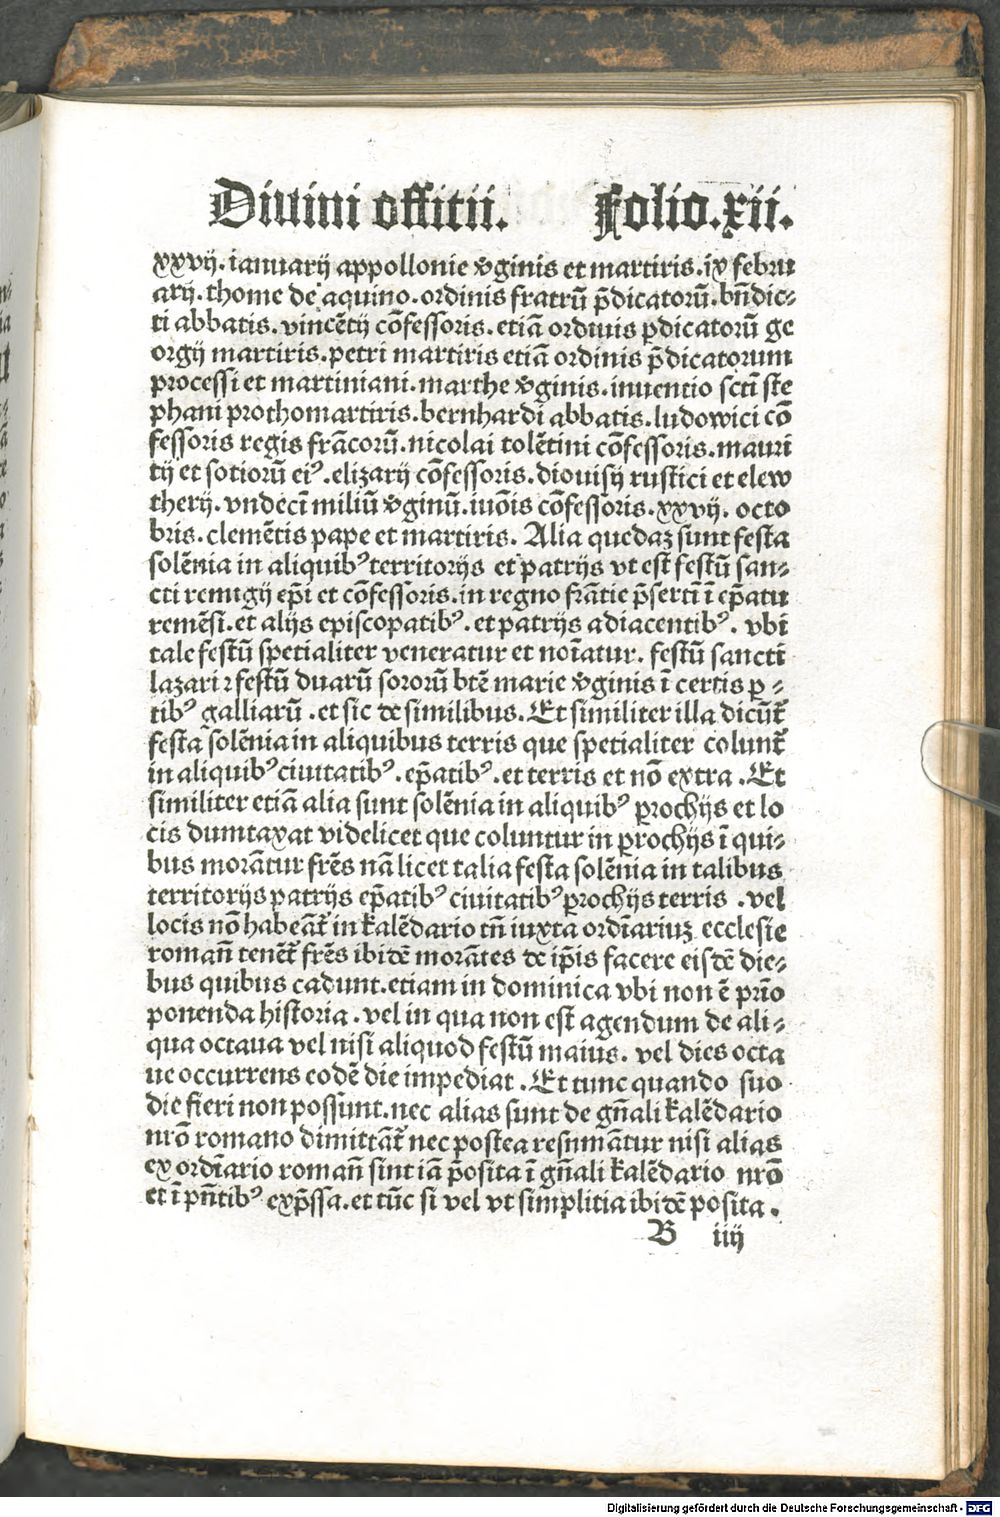 Diuini offitii. Folio.xii.
xxvij.ianuarij appollonie v̄ginis et martiris.ix febru
arij.thome de aquino.ordinis fratrū p̄dicatorū.bn̄dic⸗
ti abbatis.vincētij cōfessoris.etiā ordinis p̄dicatorū ge
orgij martiris.petri martiris etiā ordinis p̄dicatorum
processi et martiniani.marthe v̄ginis.inuentio scti ste
phani prothomartiris.bernhardi abbatis.ludowici cō
fessoris regis frācorū.nicolai tolētini cōfessoris.mauri
tij et sotiorū eiꝰ.elizarij cōfessoris.dionisij rustici et elew
therij.vndeci miliū v̄ginū.iuōis cōfessoris.xxvij. octo
bris.clemētis pape et martiris. Alia quedaꝫ sunt festa
solēnia in aliquibꝰ territorijs et patrijs vt est festū san⸗
cti remigij ep̄i et cōfessoris.in regno frātie p̄serti ī ep̄atu
remēsi.et alijs episcopatibꝰ.et patrijs adiacentibꝰ. vbi
tale festū spetialiter veneratur et noīatur. festū sancti
lazari ⁊ festū duarū sororū btē marie v̄ginis ī certis ꝑ⸗
tibꝰ galliarū .et sic de similibus. Et similiter illa dicūt᷑
festa solēnia in aliquibus terris que spetialiter colunt᷑
in aliquibꝰ ciuitatibꝰ.ep̄atibꝰ.et terris et nō extra .Et
similiter etiā alia sunt solēnia in aliquibꝰ ꝑrochijs et lo
cis dumtaxat videlicet que coluntur in ꝑrochijs ī qui⸗
bus morātur frēs nā licet talia festa solēnia in talibus
territorijs patrijs ep̄atibꝰ ciuitatibꝰ ꝑrochijs terris .vel
locis nō habeāt᷑ in kalēdario tn̄ iuxta ordīariuꝫ ecclesie
roman̄ tenēt᷑ frēs ibidē morātes de ip̄is facere eisdē die⸗
bus quibus cadunt.etiam in dominica vbi non ē prīo
ponenda historia .vel in qua non est agendum de ali⸗
qua octaua vel nisi aliquod festū maius. vel dies octa
ue occurrens eodē die impediat .Et tunc quando suo
die fieri non possunt.nec alias sunt de gn̄ali kalēdario
nrō romano dimittāt᷑ nec postea resumātur nisi alias
ex ordīario roman̄ sint iā p̄osita ī gn̄ali kalēdario nrō
et ī pn̄tibꝰ exp̄ssa.et tūc si vel vt simplitia ibidē posita .
B iiij
Digitalisierung gefördert durch die Deutsche Forschungsgemeinschaft - DFG